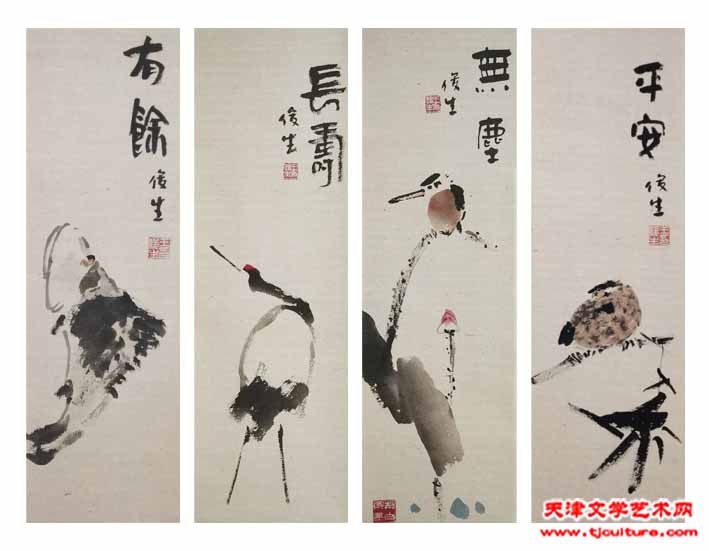 有餘
俊生
長壽
俊生
無塵
俊生
平安
俊生
天津文学艺术网
www.tjculture.com